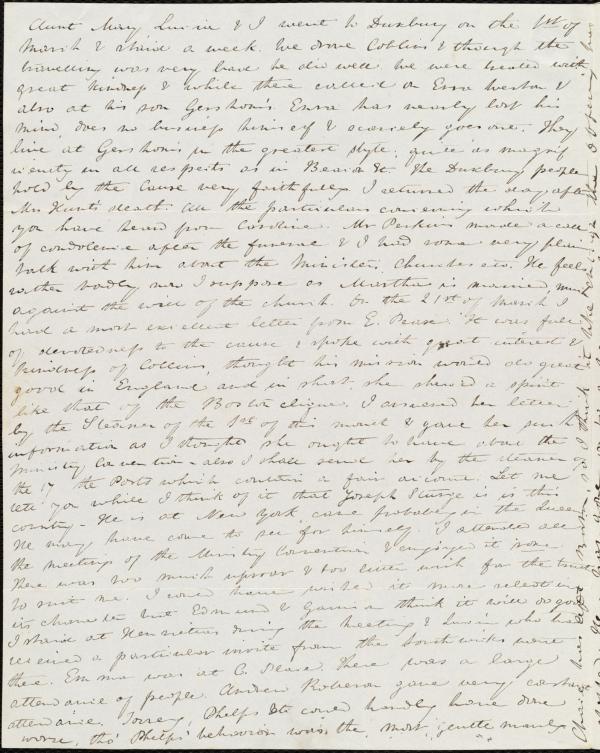 Aunt Mary, Louisa & I went to Duxbury on the 1st of
March & staid a week. We drove Collins & though the
travelling was very bad he did well. We were treated with
great kindness & while there called on Ezra Weston &
also at his son Gershom's. Ezra has nearly lost his
mind, does no business himself & scarcely goes out. They
live at Gershom's in the greatest style, quite as magnif
icently in all respects as in Beacon St. The Duxbury people
hold by the cause very faithfully. I returned the day after
Mrs Hunt's death all the particulars concerning which
you have heard from Caroline. Mr Perkins made a call
of condolence after the funeral & I had some very plain
talk with him about the Ministers, Churches etc. He feels
rather badly now I suppose as Martha is married, much
against the will of the church. On the 21st of March I
had a most excellent letter from E. Pease. It was full
of devotedness to the cause & spoke with great interest &
kindness of Collins, thought his mission would do great
good in England and in short she shewed a spirit
like that of the Boston clique. I answered her letter
by the Steamer of the 1st of this month & gave her such
information as I thought she ought to have about the
Ministry Convention - also I shall send her by the steamer of
the 17 the Posts which contain a fair account. Let me
tell you while I think of it that Joseph Sturge is in this
country - He is at New York, came probably in the Queen
He may have come to see for himself. I attended all
the meetings of the Ministry Convention & enjoyed it some.
There was too much uproar & too little wish for the truth
to suit me. I could have wished it more select in
its character but Edmund & Garrison think it will do good
I staid at Henrietta's during the meeting & Louisa who had
received a particular invite from the Southwicks went
there. Emma was at C. Place. There was a large
attendance of people. Andrew Robeson gave very constant
attendance. Torrey, Phelps &c could hardly have done
worse, tho' Phelps' behaviour was the most gentlemanly